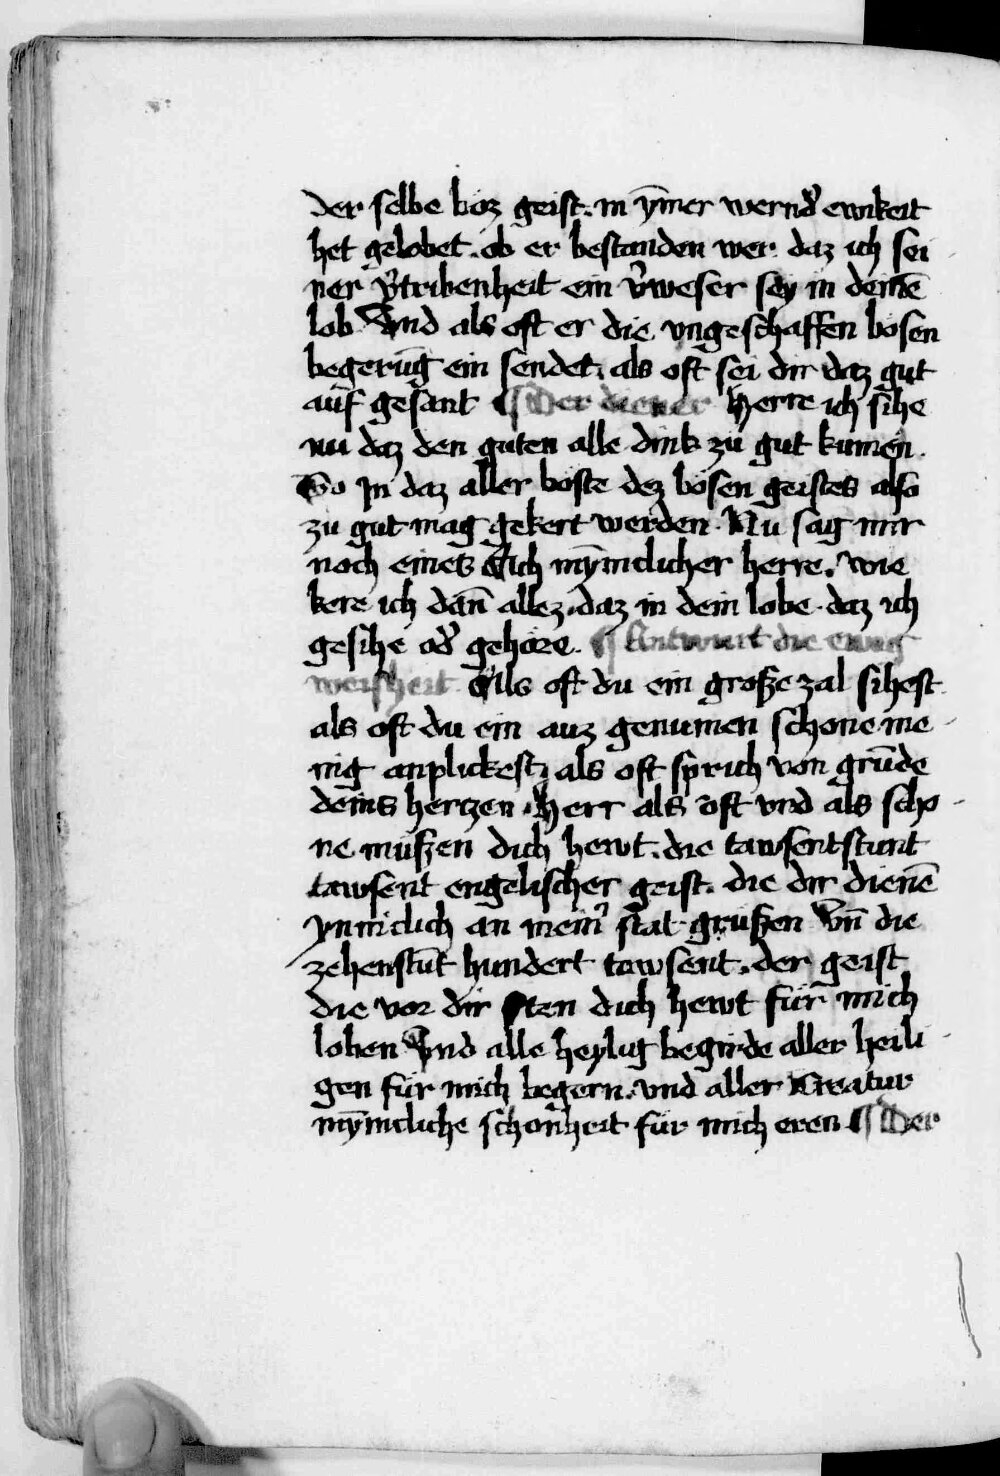 der selbe böz geist. in ym̄er wernd̾ ewikeit
het gelobet. ob er bestanden wer. daz ich sei
ner v̾tribenheit ein v̾weser sey in deinē
lob Vnd als oft er die vngeschaffen bösen
begerūg ein sendet. als oft sei dir daz gut
auf gesant ¶ Der diener Herre ich sihe
nu daz den guten alle dink zu gut kumen.
So Jn daz aller böste dez bösen geistes also
zu gut mag gekert werden. Nu sag mir
noch eines Ach mȳniclicher herre. wie
kere ich dan̄ allez. daz in dein lobe. daz ich
gesihe od̾ gehöre. ¶ Antwurt die ewig
weisheit Als oft du ein große zal sihest
als oft du ein auz genumen schone me-
nig anplickest. als oft sprich von grūde
deins hertzen. Herr als oft vnd als scho-
ne müßen dich hewt. die tawsentstunt
tawsent engelischer geist. die dir dienē
ynniclich an mein̾ stat grüßen Vn̄ die
zehenstūt hundert tawsent. der geist
die vor dir sten dich hewt für mich
loben Vnd alle heylig begirde aller heili-
gen für mich begern. vnd aller Kreatur
mȳnicliche schonheit für mich eren ¶ Der